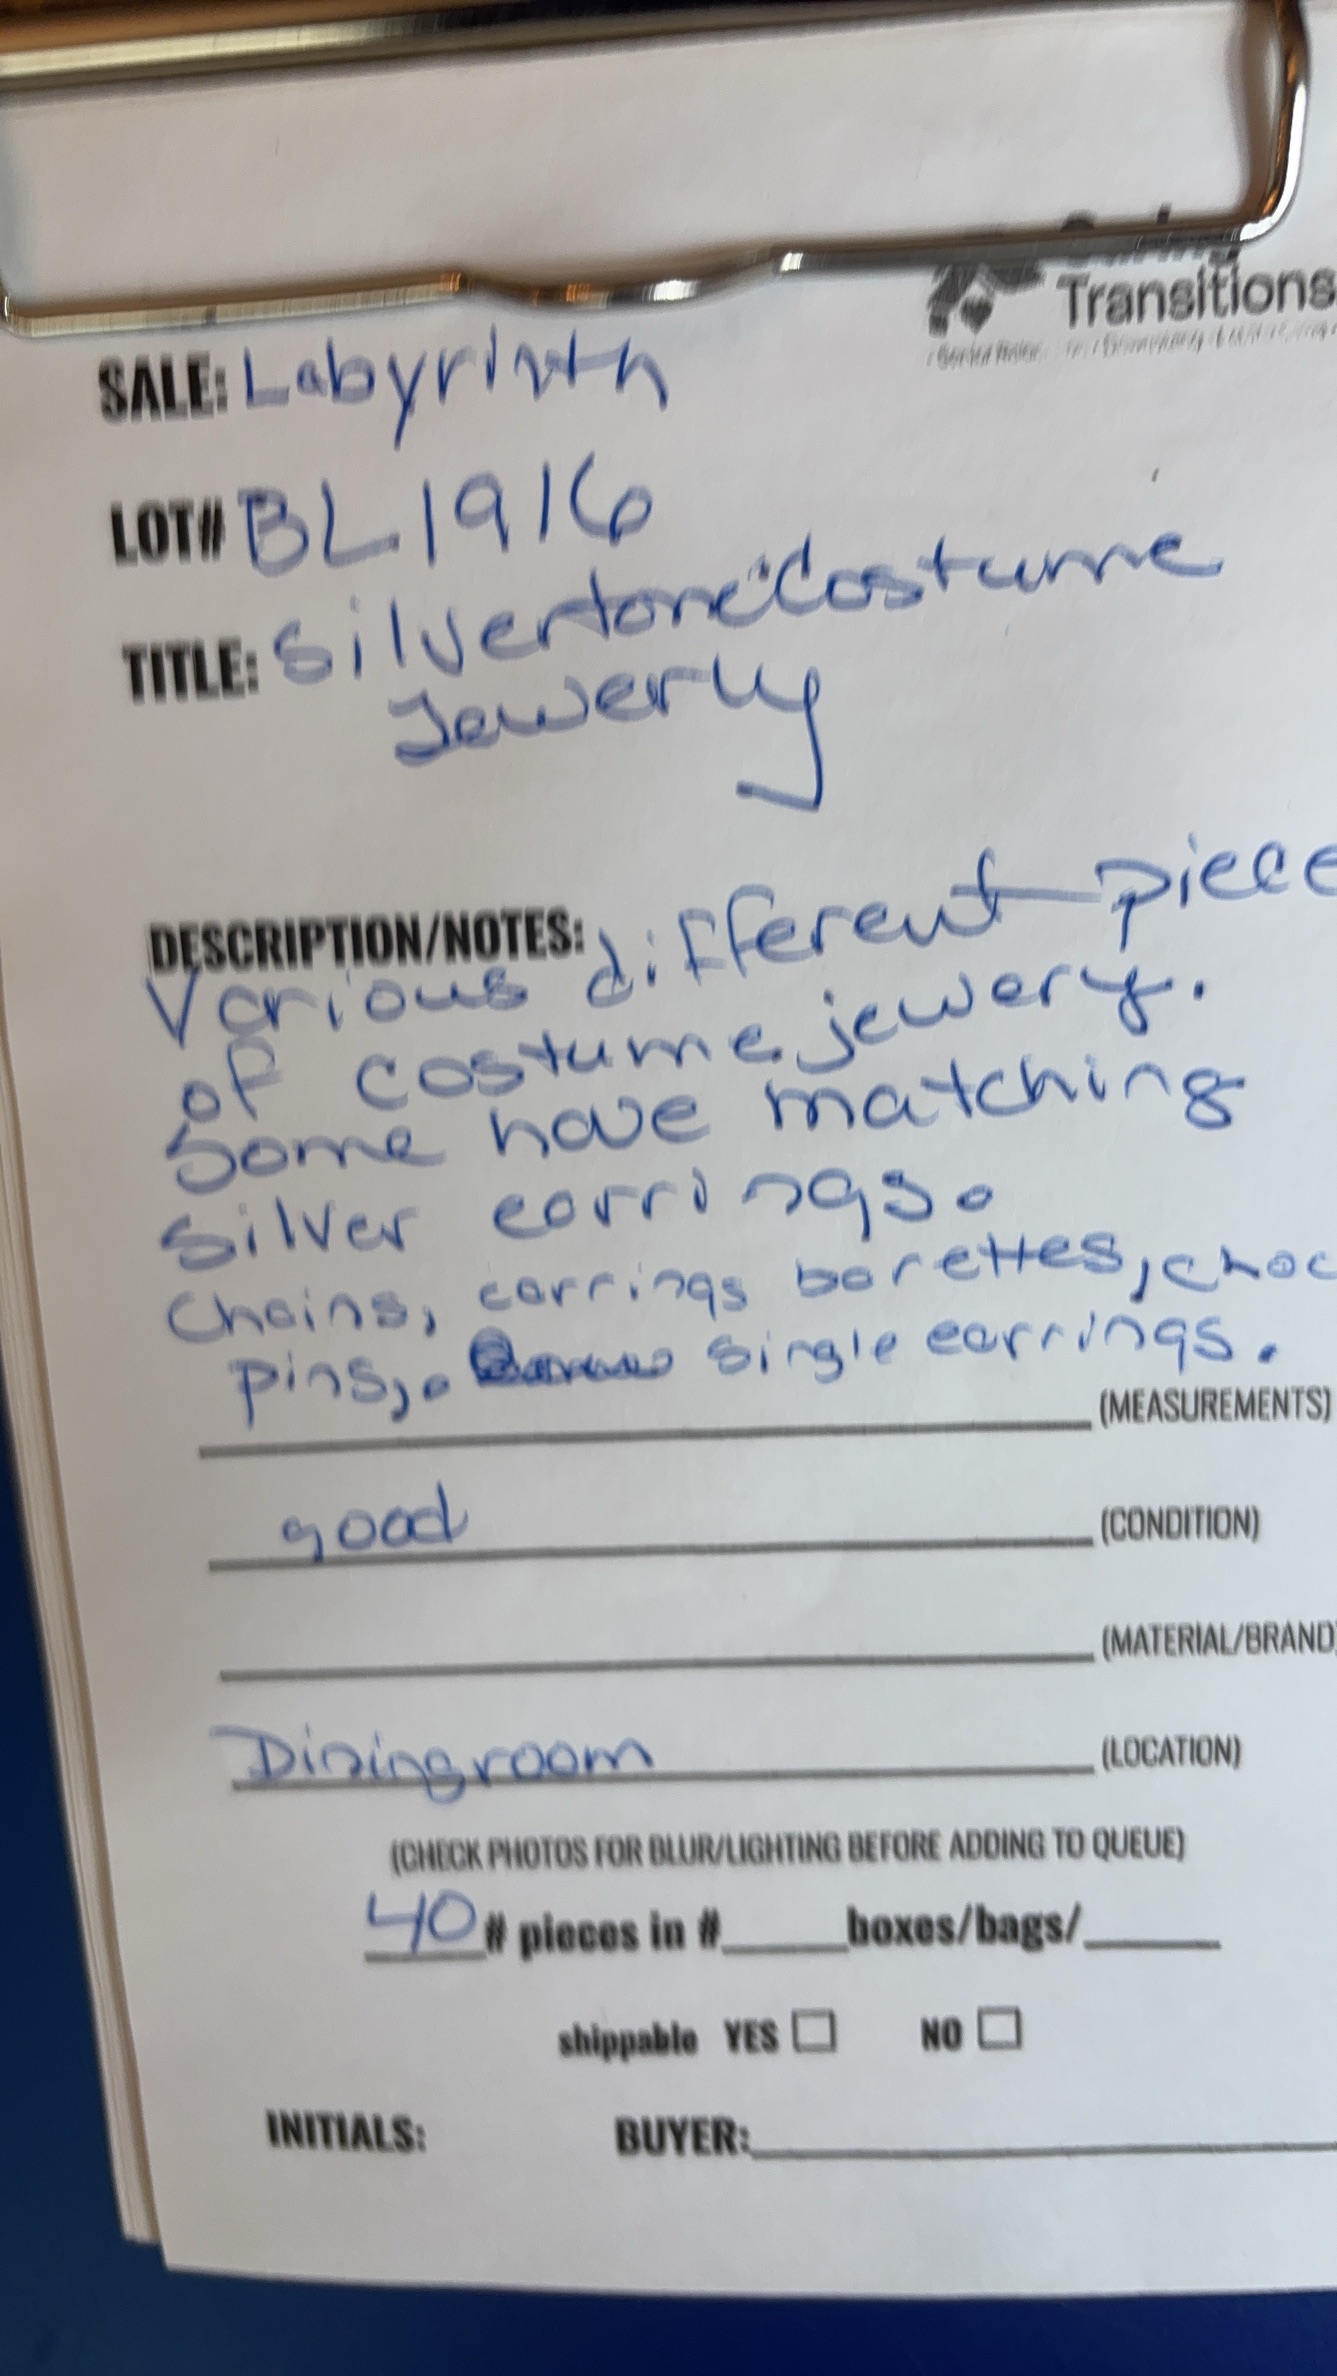 Transitions
SALE: Labyrinth
LOT# BL1916
TITLE: Silvertone Costume
Jewerly
DESCRIPTION/NOTES:
Various different piece
of costume jewery.
Some have matching
silver earrings.
Chains, earrings barettes, choc
pins, single earrings.
(MEASUREMENTS)
good (CONDITION)
(MATERIAL/BRAND)
Diningroom (LOCATION)
(CHECK PHOTOS FOR BLUR/LIGHTING BEFORE ADDING TO QUEUE)
40 # pieces in #_____boxes/bags/_____
shippable YES ☐ NO ☐
INITIALS: BUYER: